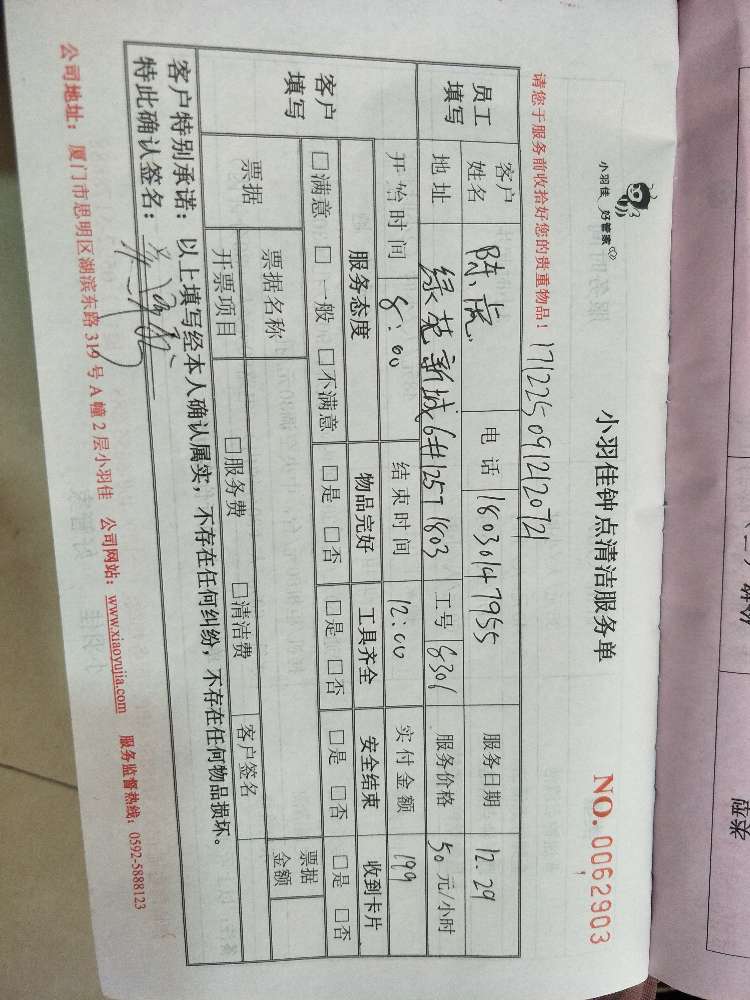 小羽佳 好管家
小羽佳钟点清洁服务单
NO. 0062903
请您于服务前收拾好您的贵重物品！ 1712250912120721
员工填写 客户姓名 电话 18030147955 服务日期 12.29
地址 绿苑新城6#125T1803 工号 8301 服务价格 50元/小时
客户填写 开始时间 8:00 结束时间 12:00 实付金额 199
服务态度 物品完好 工具齐全 安全结束 收到卡片
□满意 □一般 □不满意 □是 □否 □是 □否 □是 □否 □是 □否
票据 票据名称 票据金额
开票项目 □服务费 □清洁费 客户签名
客户特别承诺：以上填写经本人确认属实，不存在任何纠纷，不存在任何物品损坏。
特此确认签名：
公司地址：厦门市思明区湖滨东路 319 号 A 幢 2 层小羽佳 公司网站：www.xiaoyujia.com 服务监督热线：0592-5888123